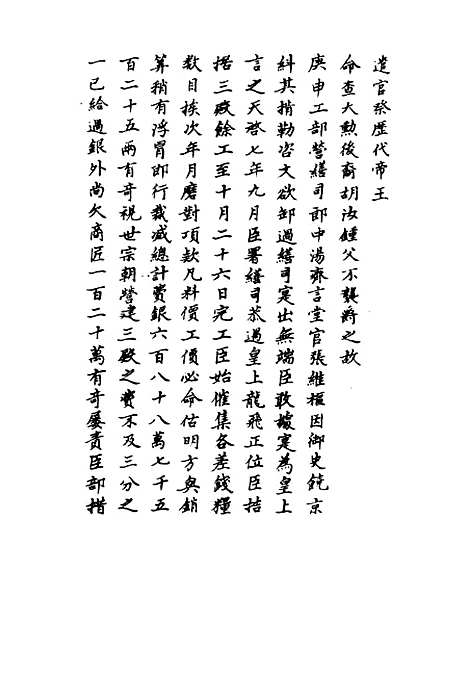 遣官祭歷代帝王
命查大勲後裔胡汝鍾父不襲爵之故
庚申工部營繕司郎中湯齊言堂官張維樞因御史
糾其揹勒咨文欲卸過繕司寔出無端臣敢據寔為皇上
言之天啓七年九月臣署繕司恭遇皇上龍飛正位臣拮
据三殿餘工至十月二十六日完工臣始催集各差錢糧
数目挨次年月磨對項款凡料價工價必命估明方與銷
算稍有浮冒即行裁减總計費銀六百八十八萬七千五
百二十五兩有奇視世宗朝營建三殿之費不及三分之
一已給過銀外尚欠商匠一百二十萬有奇屡責臣部措